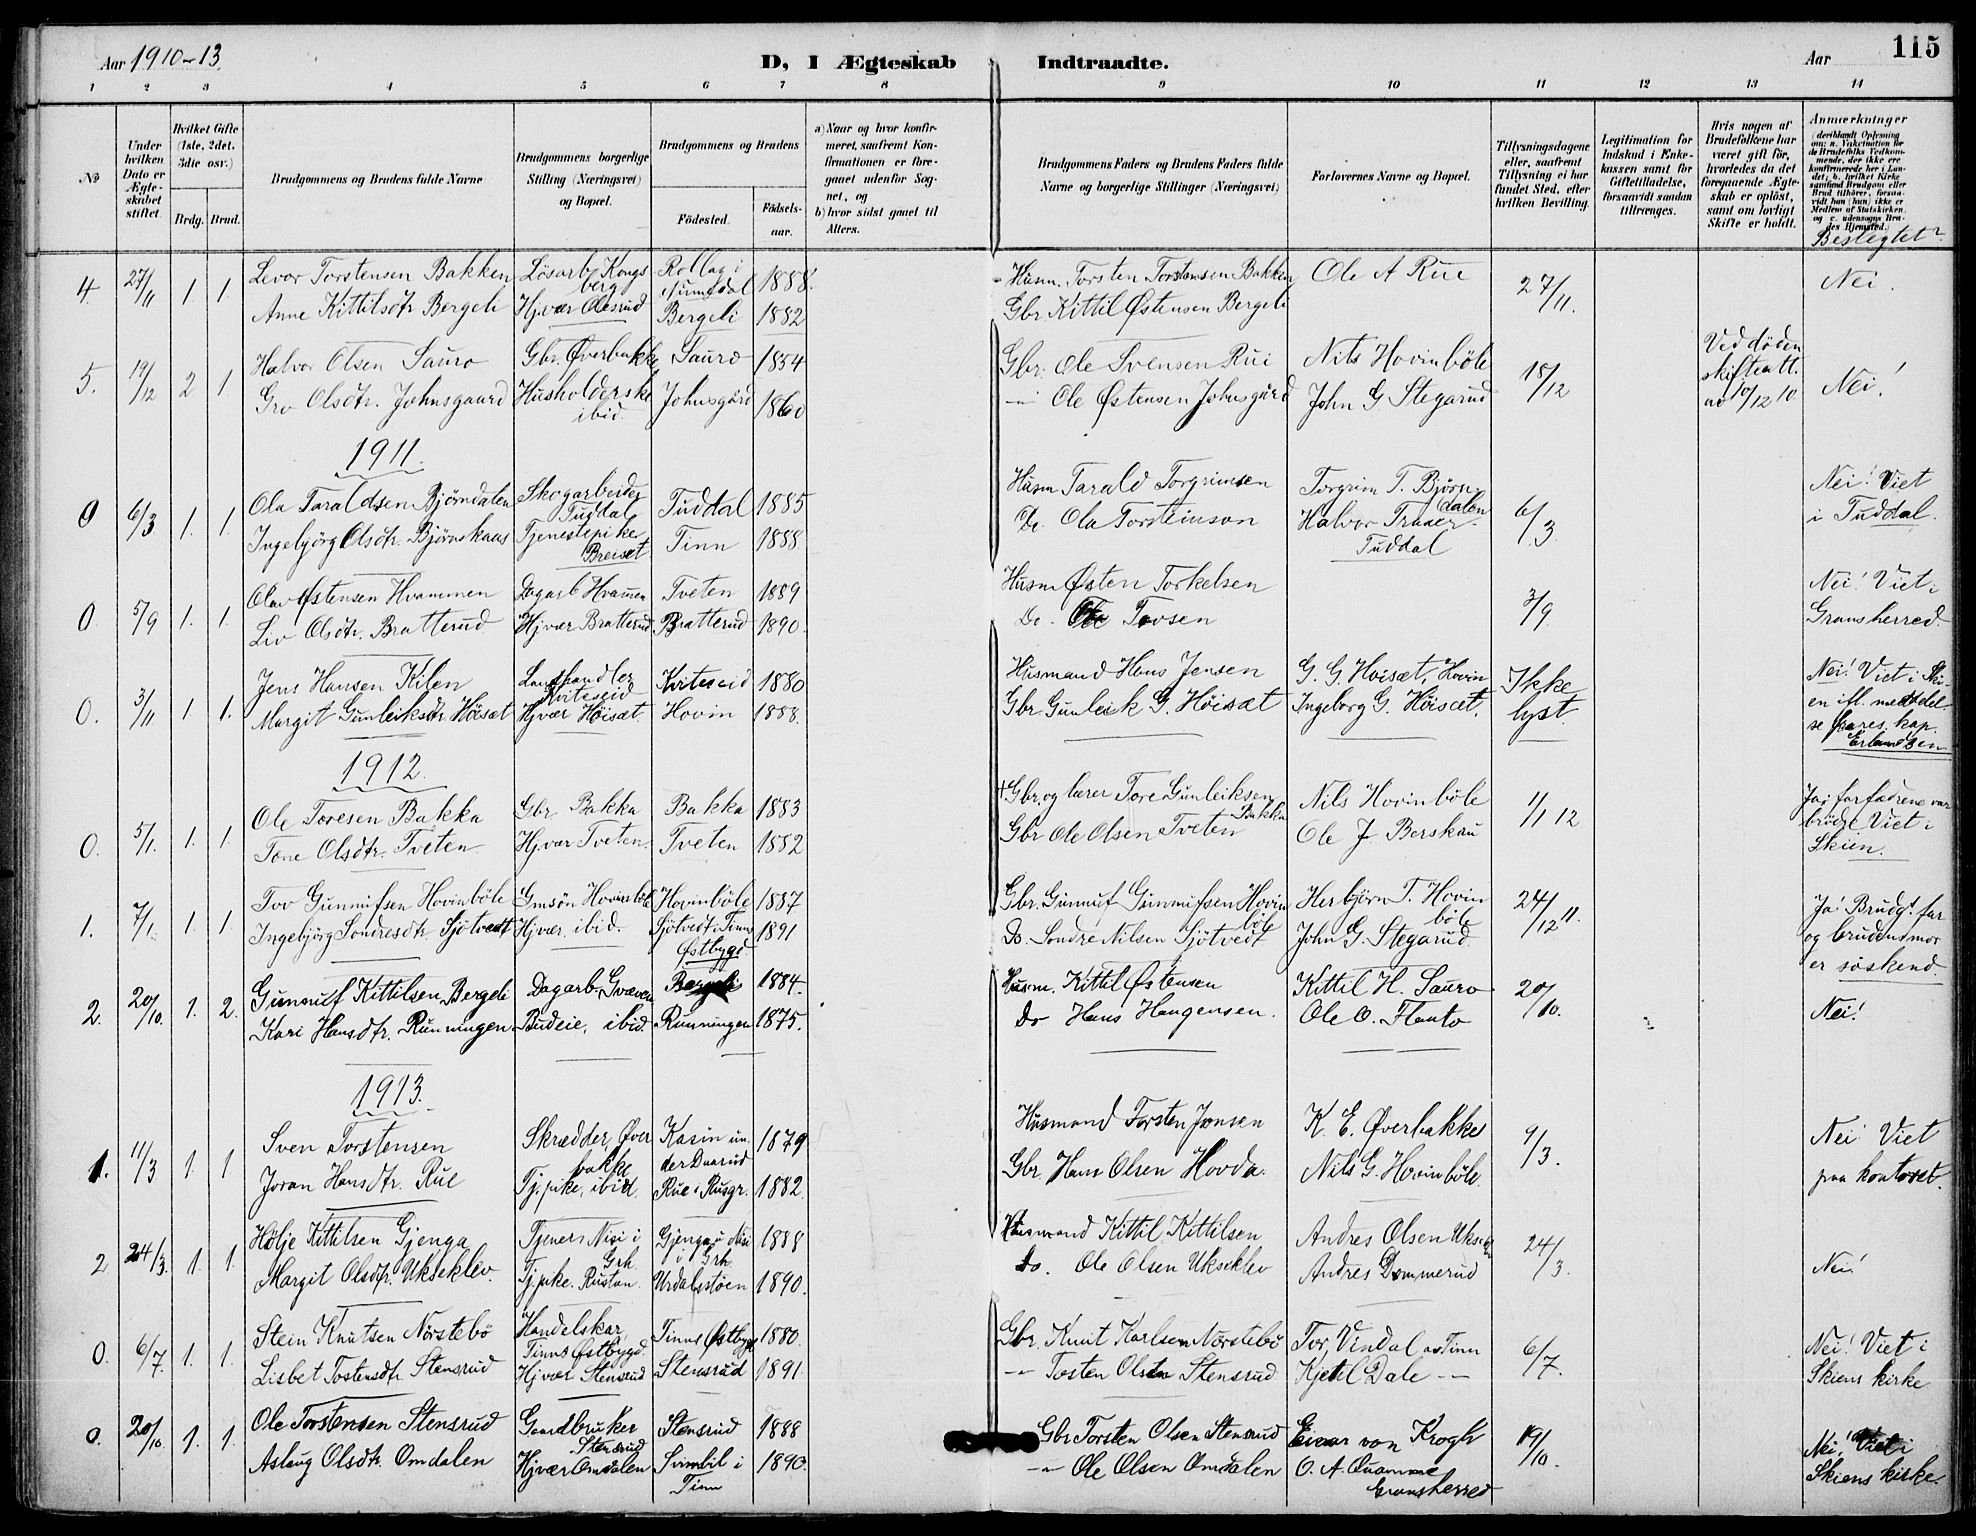 Aar 1910-13
D, I Ægteskab Indtraadte.
Aar 115
1 2 3 4 5 6 7 8 9 10 11 12 13 14
No
Under hvilken Dato er Ægteskabet stiftet.
Hvilket Gifte (1ste, 2det, 3die osv.)
Brdg. Brud.
Brudgommens og Brudens fulde Navne
Brudgommens borgerlige Stilling (Næringsvei) og Bopæl.
Brudgommens og Brudens
Fødested. Fødselsaar.
a) Naar og hvor konfirmeret, saafremt Konfirmationen er foregaaet udenfor Sognet, og
b) hvor sidst gaaet til Alters.
Brudgommens Faders og Brudens Faders fulde Navne og borgerlige Stillinger (Næringsvei)
Forlovernes Navne og Bopæl.
Tillysningsdagene eller, saafremt Tillysning ei har fundet Sted, efter hvilken Bevilling.
Legitimation for Indskud i Enkekassen samt for Giftetilladelse, forsaavidt saadan tiltrænges.
Hvis nogen af Brudefolkene har været gift før, hvorledes da det foregaaende Ægteskab er opløst, samt om lovligt Skifte er holdt.
Anmærkninger (deriblandt Oplysning om: a. Vakcination for de Brudefolks Vedkommende, der ikke ere konfirmerede her i Landet; b. hvilket Kirkesamfund Brudgom eller Brud tilhører, forsaavidt han (hun) ikke er Medlem af Statskirken, og c. udensogns Brudes Hjemsted.)
Beslegtet?
4. 27/11 1. 1. Levor Torstensen Bakken Løsarb Kongsberg Rollag i Numedal 1888. Husm. Torsten Torstensen Bakken Ole A Rue 27/11. Nei.
Anne Kittilsdtr Bergeli Hjvær Olesrud Bergeli 1882 Gbr Kittil Østensen Bergeli
5. 19/12 2 1 Halvor Olsen Sauro Gbr. Øverbakke Sauro 1854 Gbr. Ole Svensen Rui Nils Hovinbøle 18/12 Ved døden skifteatt. av 10/12 10. Nei!
Gro Olsdtr. Johnsgaard Husholderske ibid. Johnsgård 1860 -"- Ole Østensen Johnsgård John G Stegarud
1911.
0 6/3 1. 1. Ola Taraldsen Bjørndalen Skogarbeider Tuddal Tuddal 1885 Husm Tarald Torgrimsen Torgrim T. Bjørndalen 6/3. Nei! Viet i Tuddal.
Ingebjørg Olsdtr. Bjørnskaas Tjenestepike Breiset Tinn 1888. Do. Ola Torsteinson Halvor Traaer Tuddal
0 5/9 1. 1. Olav Østensen Hvammen Dagarb Hvammen Tveten 1889 Husm Østen Torkelsen 3/9. Nei! Viet i Gransherred.
Liv Olsdtr. Bratterud Hjvær Bratterud Bratterud 1890. Do. Ole Tovsen
0. 3/11 1 1. Jens Hansen Kilen Landhandler Kviteseid Kviteseid 1880 Husmand Hans Jensen G. G. Høisæt, Hovin Ikke lyst. Nei! Viet i Skien ifl. meddelelse fra res. kap. Erlandsen
Margit Gunleiksdtr Høisæt Hjvær Høisæt. Hovin 1888. Gbr. Gunleik G. Høisæt Ingeborg G. Høisæt.
1912.
0. 5/1. 1. 1. Ole Toresen Bakka Gbr Bakka Bakka 1883 +Gbr. og lærer Tore Gunleiksen Bakka Nils Hovinbøle 1/1 12 Ja; farfædrene var brødre. Viet i Skien.
Tone Olsdtr. Tveten Hjvær Tveten. Tveten 1882 Gbr Ole Olsen Tveten Ole J Berskau
1. 7/1. 1. 1 Tov Gunnufsen Hovinbøle Gmsøn Hovinbøle Hovinbøle 1887 Gbr. Gunnuf Gunnufsen Hovinbøle Herbjørn T. Hovinbøle 24/12 11. Ja! Brudg. far og brudens mor er søskend.
Ingebjørg Sondresdtr. Sjøtvedt Hjvær. ibid. Sjøtvedt i Tinns Østbygd 1891 Do. Sondre Nilsen Sjøtvedt John G. Stegarud
2. 20/10. 1. 2. Gunnulf Kittilsen Bergeli Dagarb. Gvæven Bergeli 1884. Husm. Kittil Østensen Kittil H. Sauro 20/10. Nei!
Kari Hansdtr. Runningen Budeie, ibid. Runningen 1875. Do Hans Haugensen. Ole O. Flanto
1913.
1. 11/3 1. 1 Sven Torstensen Skrædder, Øverbakke Kasin under Daarud 1879 Husmand Torsten Jonsen K. E. Øverbakke 9/3. Nei! Viet paa kontoret.
Joran Hansdtr. Rue Tj.pike, ibid. Rue i Rusgr. 1882. Gbr Hans Olsen Hovda. Nils G. Hovinbøle.
2 24/3. 1. 1. Hølje Kittilsen Gjenga Tjener Nisi i Grh. Gjenga u. Nisi i Grh. 1888 Husmand Kittil Kittilsen Andres Olsen Ukseklev 24/3. Nei!
Margit Olsdtr. Ukseklev. Tjpike. Rustan. Urdalsstøen 1890. Do. Ole Olsen Ukseklev Andres Dommerud
0. 6/7. 1. 1. Stein Knutsen Nørstebø Handelskar Tinns Østbygd Tinns Østbygd 1880. Gbr. Knut Karlsen Nørstebø Tor, Vindal av Tinn 6/7. Nei! Viet i Skiens kirke
Lisbet Tostensdtr. Stensrud Hjvær Stensrud Stensrud 1891. -"- Tosten Olsen Stensrud Kjetil Dale -"-
0. 20/10. 1. 1. Ole Torstensen Stensrud Gaardbruker Stensrud Stensrud 1888 Gbr Torsten Olsen Stensrud Einar von Krogh 19/10. Nei! Viet i Skiens kirke.
Aslaug Olsdtr. Omdalen Hjvær Omdalen Svimbil i Tinn 1890. -"- Ole Olsen Omdalen O. A. Quamme Gransherred